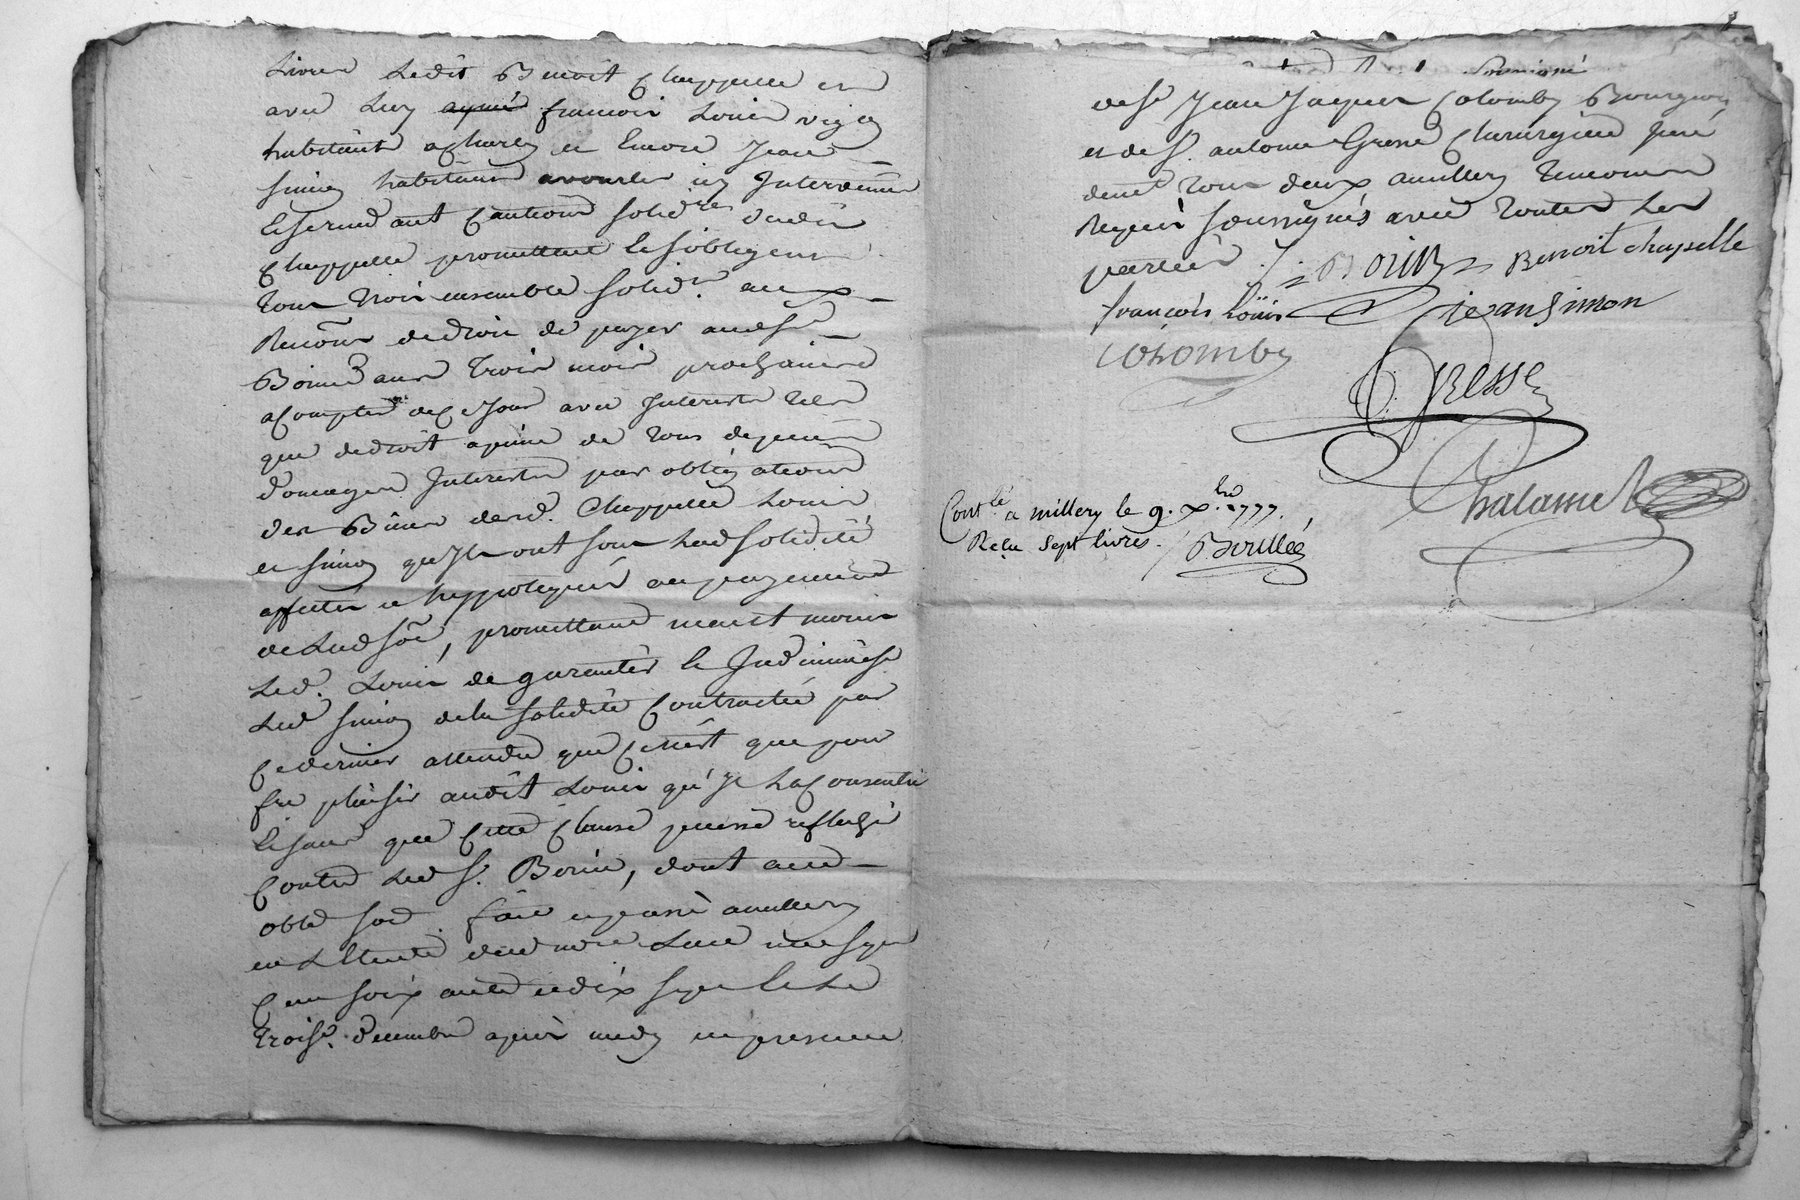 Livres Ledit Benoit Chappelle et
avec Luy aymé francois Louis vig
habitant a Charly et Encore Jean
Simon habitant a vourles icy Intervenus
Lesernd ont Cautions solidres dudit
Chappelle promettent et s'obligent
tous trois ensemble solidt. aux
Renõns de droit de payer audSr
Boiney dans trois mois prochains
a Compter de Ce Jour avec Interests tels
que de droit a peine de tous depens
domages Interests par obligations
des Biens desd. Chappelle Louis
et simon qu'Ils ont sous Lad solidité
affectés et hyppotequés au payement
de Lad sõe, promettant neant moins
Led. Louis de garentir et Indemniser
Led simon de la solidité Contractée par
Ce dernier attendu que Ce n'est que pour
fre plaisir audit Louis qu'Il L'a Consentie
et sans que Cette Clause puisse reflechir
Contre Led Sr. Boiri, dont acte
oblé soé. fait et passé a millery
en L'Etude dud nore L'an mil sept
Cent soixante et dix sept et Le
troise. decembre apres midy en presence
de Sr Jean Jaques Colomby Bourgeois
et de Sr. antoine Gresse Chirurgien juré
demt tous deux a millery temoins
Requis soussignés avec toutes Les
parties.
Benoit chapelle
francois Loüis jean simon
Colomby
Gresse
Chalamel
Contlé a millery le 9. Xbre 1777.
Recu sept livres. Boullée